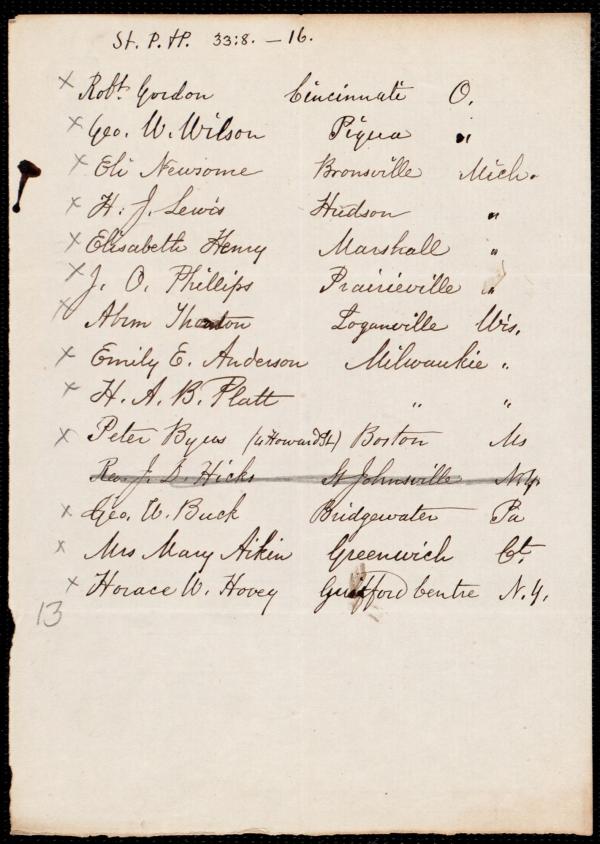 St. P. & P. 33:8. — 16.
x Robt. Gordon Cincinnati O.
x Geo. W. Wilson Piqua "
x Eli Newsome Bronsville Mich.
x H. J. Lewis Hudson "
x Elisabeth Henry Marshall "
x J. O. Phillips Prairieville "
x Abrm Thornton Loganville Wis.
x Emily E. Anderson Milwaukie "
x H. A. B. Platt " "
x Peter Byus (4 Howard St.) Boston Ms
Rev. J. D. Hicks St Johnsville N.Y.
x Geo. W. Buck Bridgewater Pa
x Mrs Mary Aikin Greenwich Ct.
x Horace W. Hovey Guilford Centre N.Y.
13